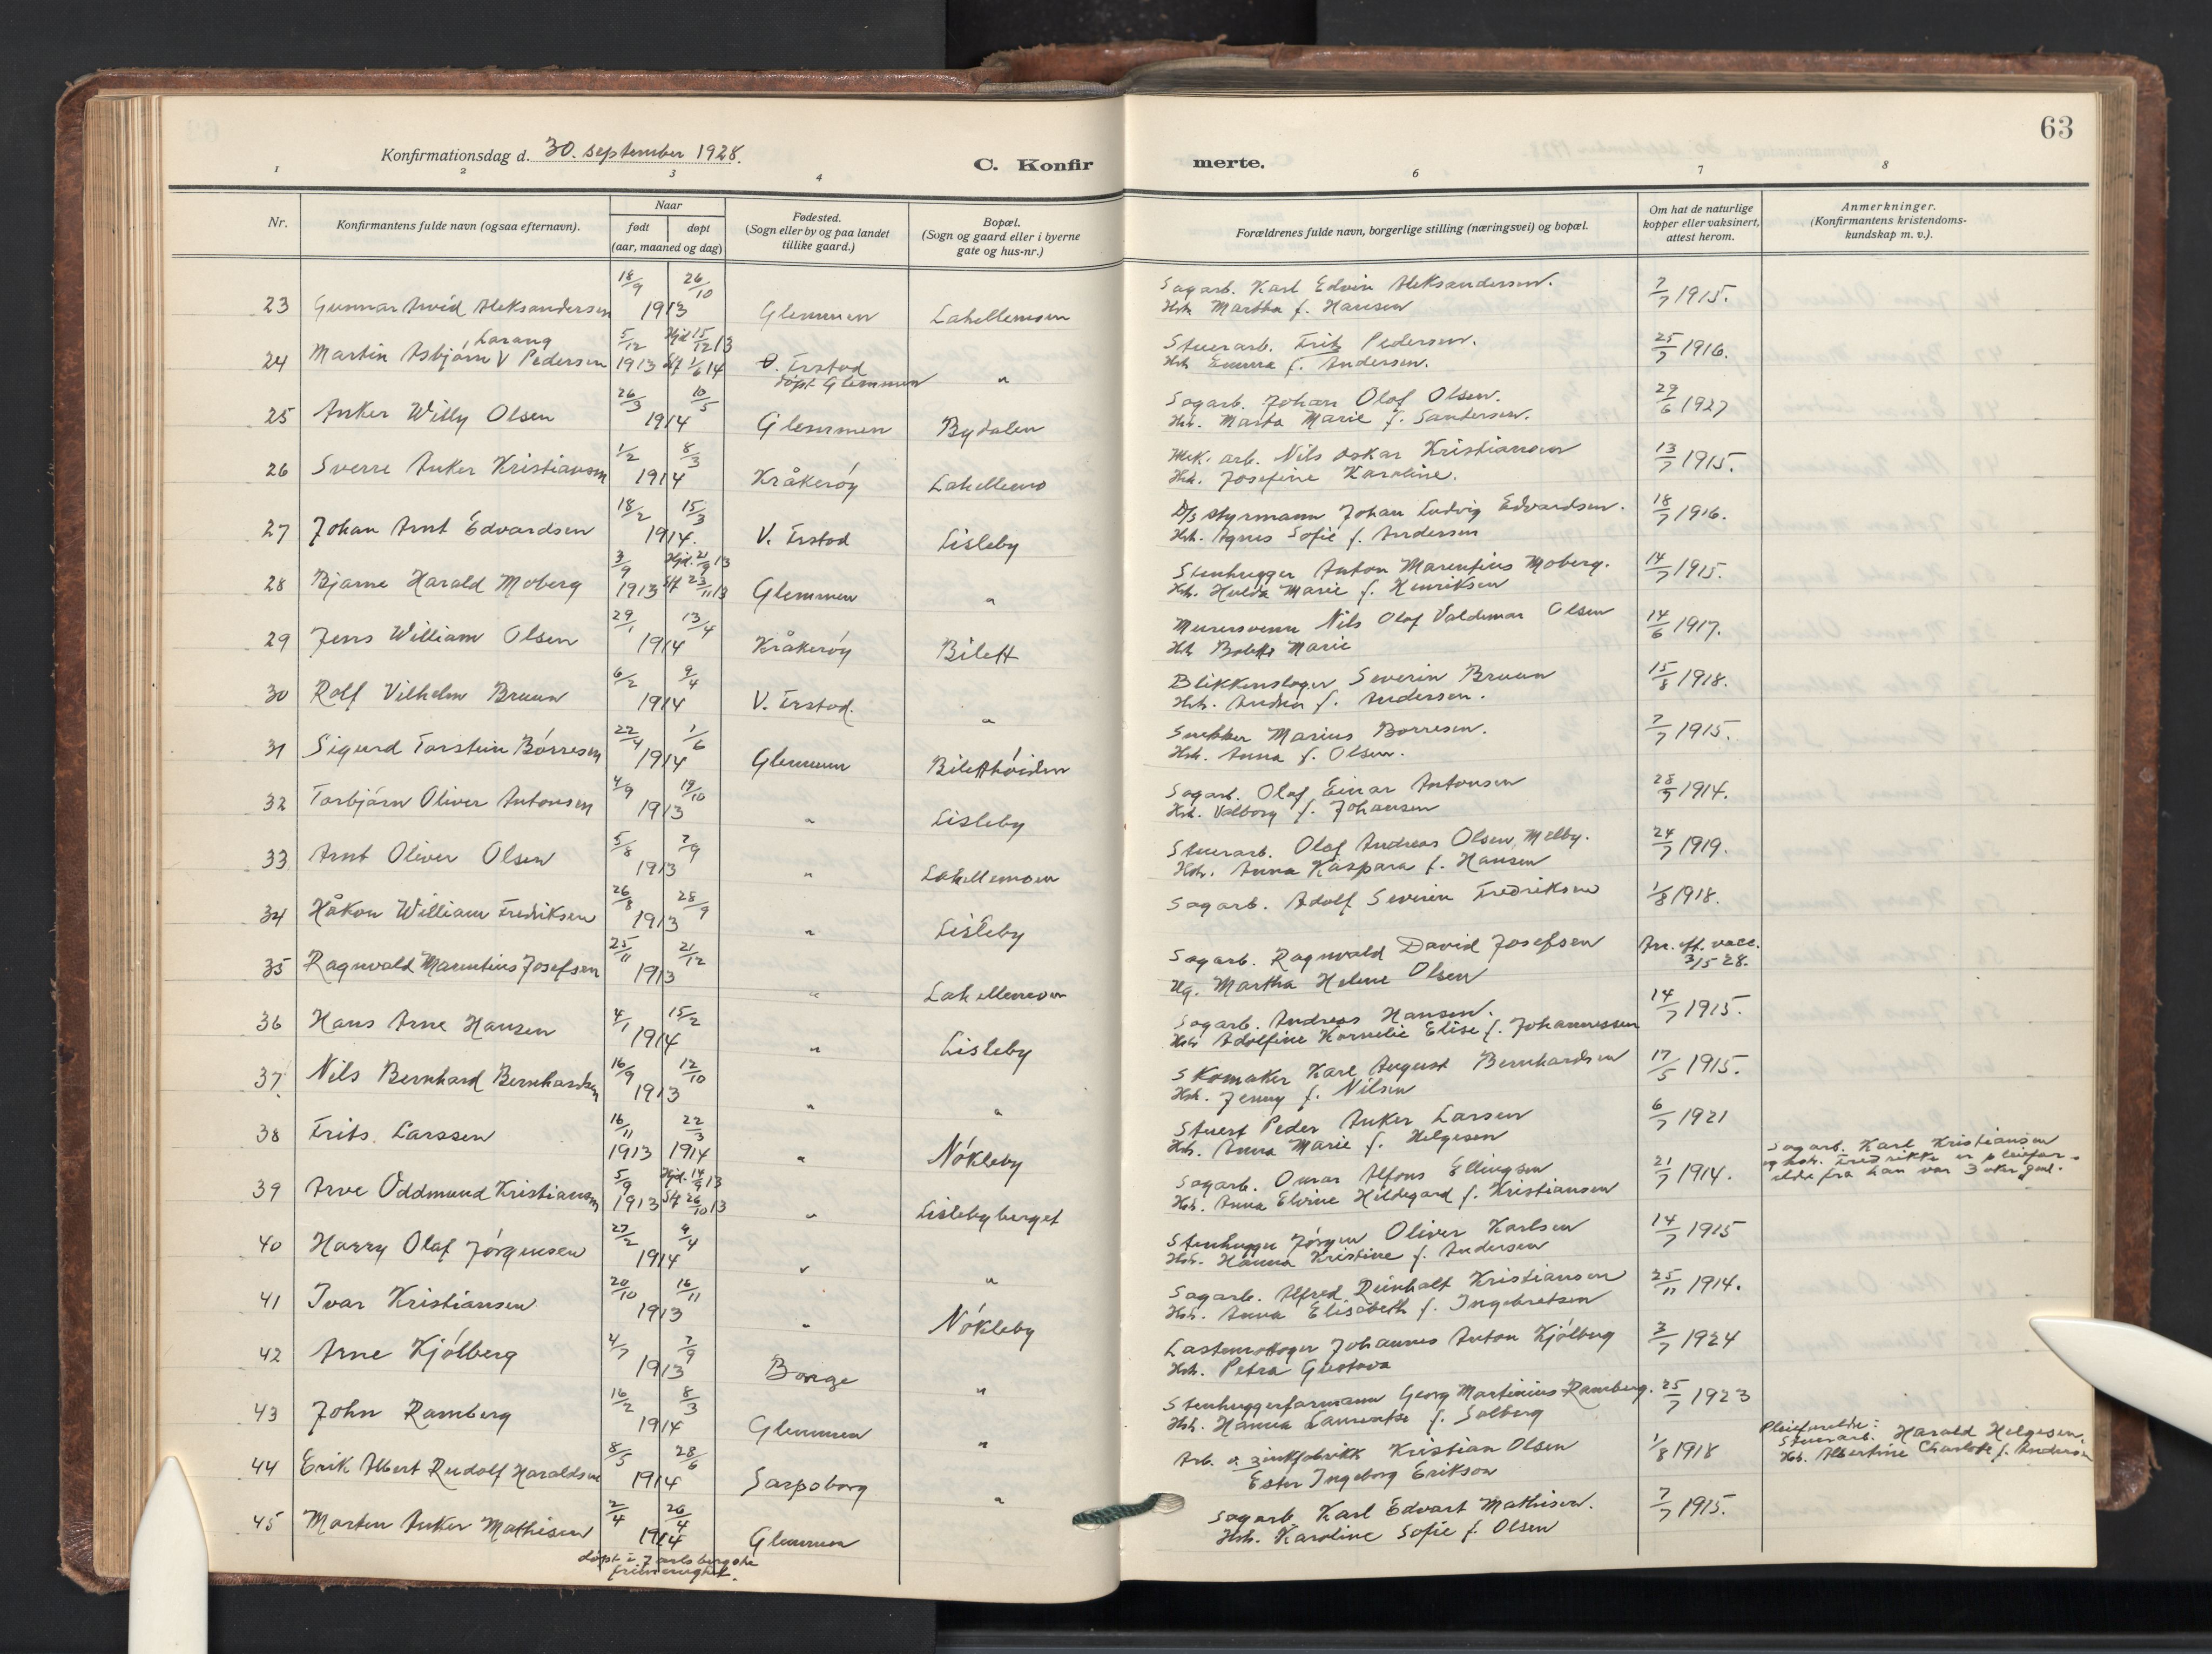 63
Konfirmationsdag d. 30. september 1928.
C. Konfir merte.
1 2 3 4 6 7 8
Nr.
Konfirmantens fulde navn (ogsaa efternavn).
Naar
født døpt
(aar, maaned og dag)
Fødested.
(Sogn eller by og paa landet
tillike gaard.)
Bopæl.
(Sogn og gaard eller i byerne
gate og hus-nr.)
Forældrenes fulde navn, borgerlige stilling (næringsvei) og bopæl.
Om hat de naturlige
kopper eller vaksinert,
attest herom.
Anmerkninger.
(Konfirmantens kristendoms-
kundskap m. v.).
23 Gunnar Arvid Aleksandersen 18/9 26/10 1913 Glemmen Lahellemoen
Sagarb. Karl Edvin Aleksandersen. 7/7 1915.
Hstr. Martha f. Hansen
24 Martin Asbjørn V Pedersen 5/12 1913 Hjd. 15/12 13 Stf 1/6 14 Ø. Frstad døpt Glemmen "
Stuerarb. Frits Pedersen. 25/7 1916.
Hst. Emma f. Andersen.
25 Anker Willy Olsen 26/3 10/5 1914 Glemmen Bydalen
Sagarb. Johan Olof Olsen. 29/6 1927
Hst. Marta Marie f. Sandersen.
26 Sverre Anker Kristiansen 1/2 8/3 1914 Kråkerøy Lahellemo
Mek. arb. Nils Oskar Kristiansen 13/7 1915.
Hst. Josefine Karoline.
27 Johan Arnt Edvardsen 18/2 15/3 1914. V. Frstad Lisleby
D/s styrmann Johan Ludvig Edvardsen. 18/7 1916.
Hst. Agnes Sofie f. Andersen
28 Bjarne Harald Moberg 3/9 1913 Hjd. 21/9 13 Stf 23/11 13 Glemmen "
Stenhugger Anton Marentius Moberg. 14/7 1915.
Hst. Hulda Marie f. Henriksen
29 Jens William Olsen 29/1 13/4 1914 Kråkerøy Bilett
Murersvenn Nils Olof Valdemar Olsen 14/6 1917.
Hst. Bolette Marie
30 Rolf Vilhelm Bruun 6/2 9/4 1914 V. Frstad. "
Blikkenslager Severin Bruun 15/8 1918.
Hst. Andrea f. Andersen.
31 Sigurd Torstein Børresen 22/4 1/6 1914 Glemmen Biletthøiden
Snekker Marius Borresen. 7/7 1915.
Hst. Anna f. Olsen.
32 Torbjørn Oliver Antonsen 4/9 19/10 1913 " Lisleby
Sagarb. Olaf Einar Antonsen 28/7 1914.
Hst. Valborg f. Johansen
33 Arnt Oliver Olsen 5/8 7/9 1913 " Lahellemoen
Stuerarb. Olaf Andreas Olsen, Melby. 24/7 1919.
Hst. Anna Kaspara f. Hansen
34 Håkon William Fredriksen 26/8 28/9 1913 " Lisleby
Sagarb. Adolf Severin Fredriksen 1/8 1918.
35 Ragnvald Marentius Josefsen 25/11 21/12 1913 " Lahellemoen
Sagarb. Ragnvald David Josefsen 3/5 28.
Ug. Martha Helene Olsen
36 Hans Arne Hansen 4/1 15/2 1914 " Lisleby
Sagarb. Andreas Hansen. 14/7 1915.
Hst. Adolfine Kornelie Elise f. Johannessen
37. Nils Bernhard Bernhardsen 16/9 12/10 1913 " "
Skomaker Karl August Bernhardsen 17/5 1915.
Hst. Jenny f. Nilsen
38 Frits Larssen 16/11 1913 22/3 1914 " Nøkleby
Stuert Peder Anker Larsen 6/7 1921
Hst. Anna Marie f. Helgesen
39 Arve Oddmund Kristiansen 5/9 1913 Hjd. 14/9 13 Stf 26/10 13 " Lislebyberget
Sagarb. Omar Alfons Ellingsen 21/7 1914.
Hst. Anna Elvine Hildegard f. Kristiansen
Sagarb. Karl Kristiansen
og hstr. Fredrikke er pleiefor-
eldre fra han var 3 uker gml.
40 Harry Olaf Jørgensen 27/2 9/4 1914 " "
Stenhugger Jørgen Oliver Karlsen 14/7 1915
Hst. Hanna Kristine f. Andersen
41 Ivar Kristiansen 20/10 16/11 1913 " Nøkleby
Sagarb. Alfred Reinholt Kristiansen 25/11 1914.
Hst. Anna Elisabeth f. Ingebretsen
42 Arne Kjølberg 4/7 7/9 1913 Borge "
Lastemottager Johannes Anton Kjølberg 3/7 1924
Hst. Petra Gustava
43 John Ramberg 16/2 8/3 1914 Glemmen "
Stenhuggerformann Georg Martinius Ramberg. 25/7 1923
Hst. Hanna Laurentse f. Solberg
44 Erik Albert Rudolf Haraldsen 8/5 28/6 1914 Sarpsborg "
Arb. v. zinkfabrikk Kristian Olsen 1/8 1918
Ester Ingeborg Erikson
Pleieforeldre:
Stuerarb. Harald Helgesen.
Hst. Albertine Charlotte f. Andersen
45 Morten Anker Mathisen 2/4 26/4 1914 Glemmen
døpt i Jarlsberg ske
frimenighet.
Sagarb. Karl Edvart Mathisen. 7/7 1915.
Hst. Karoline Sofie f. Olsen